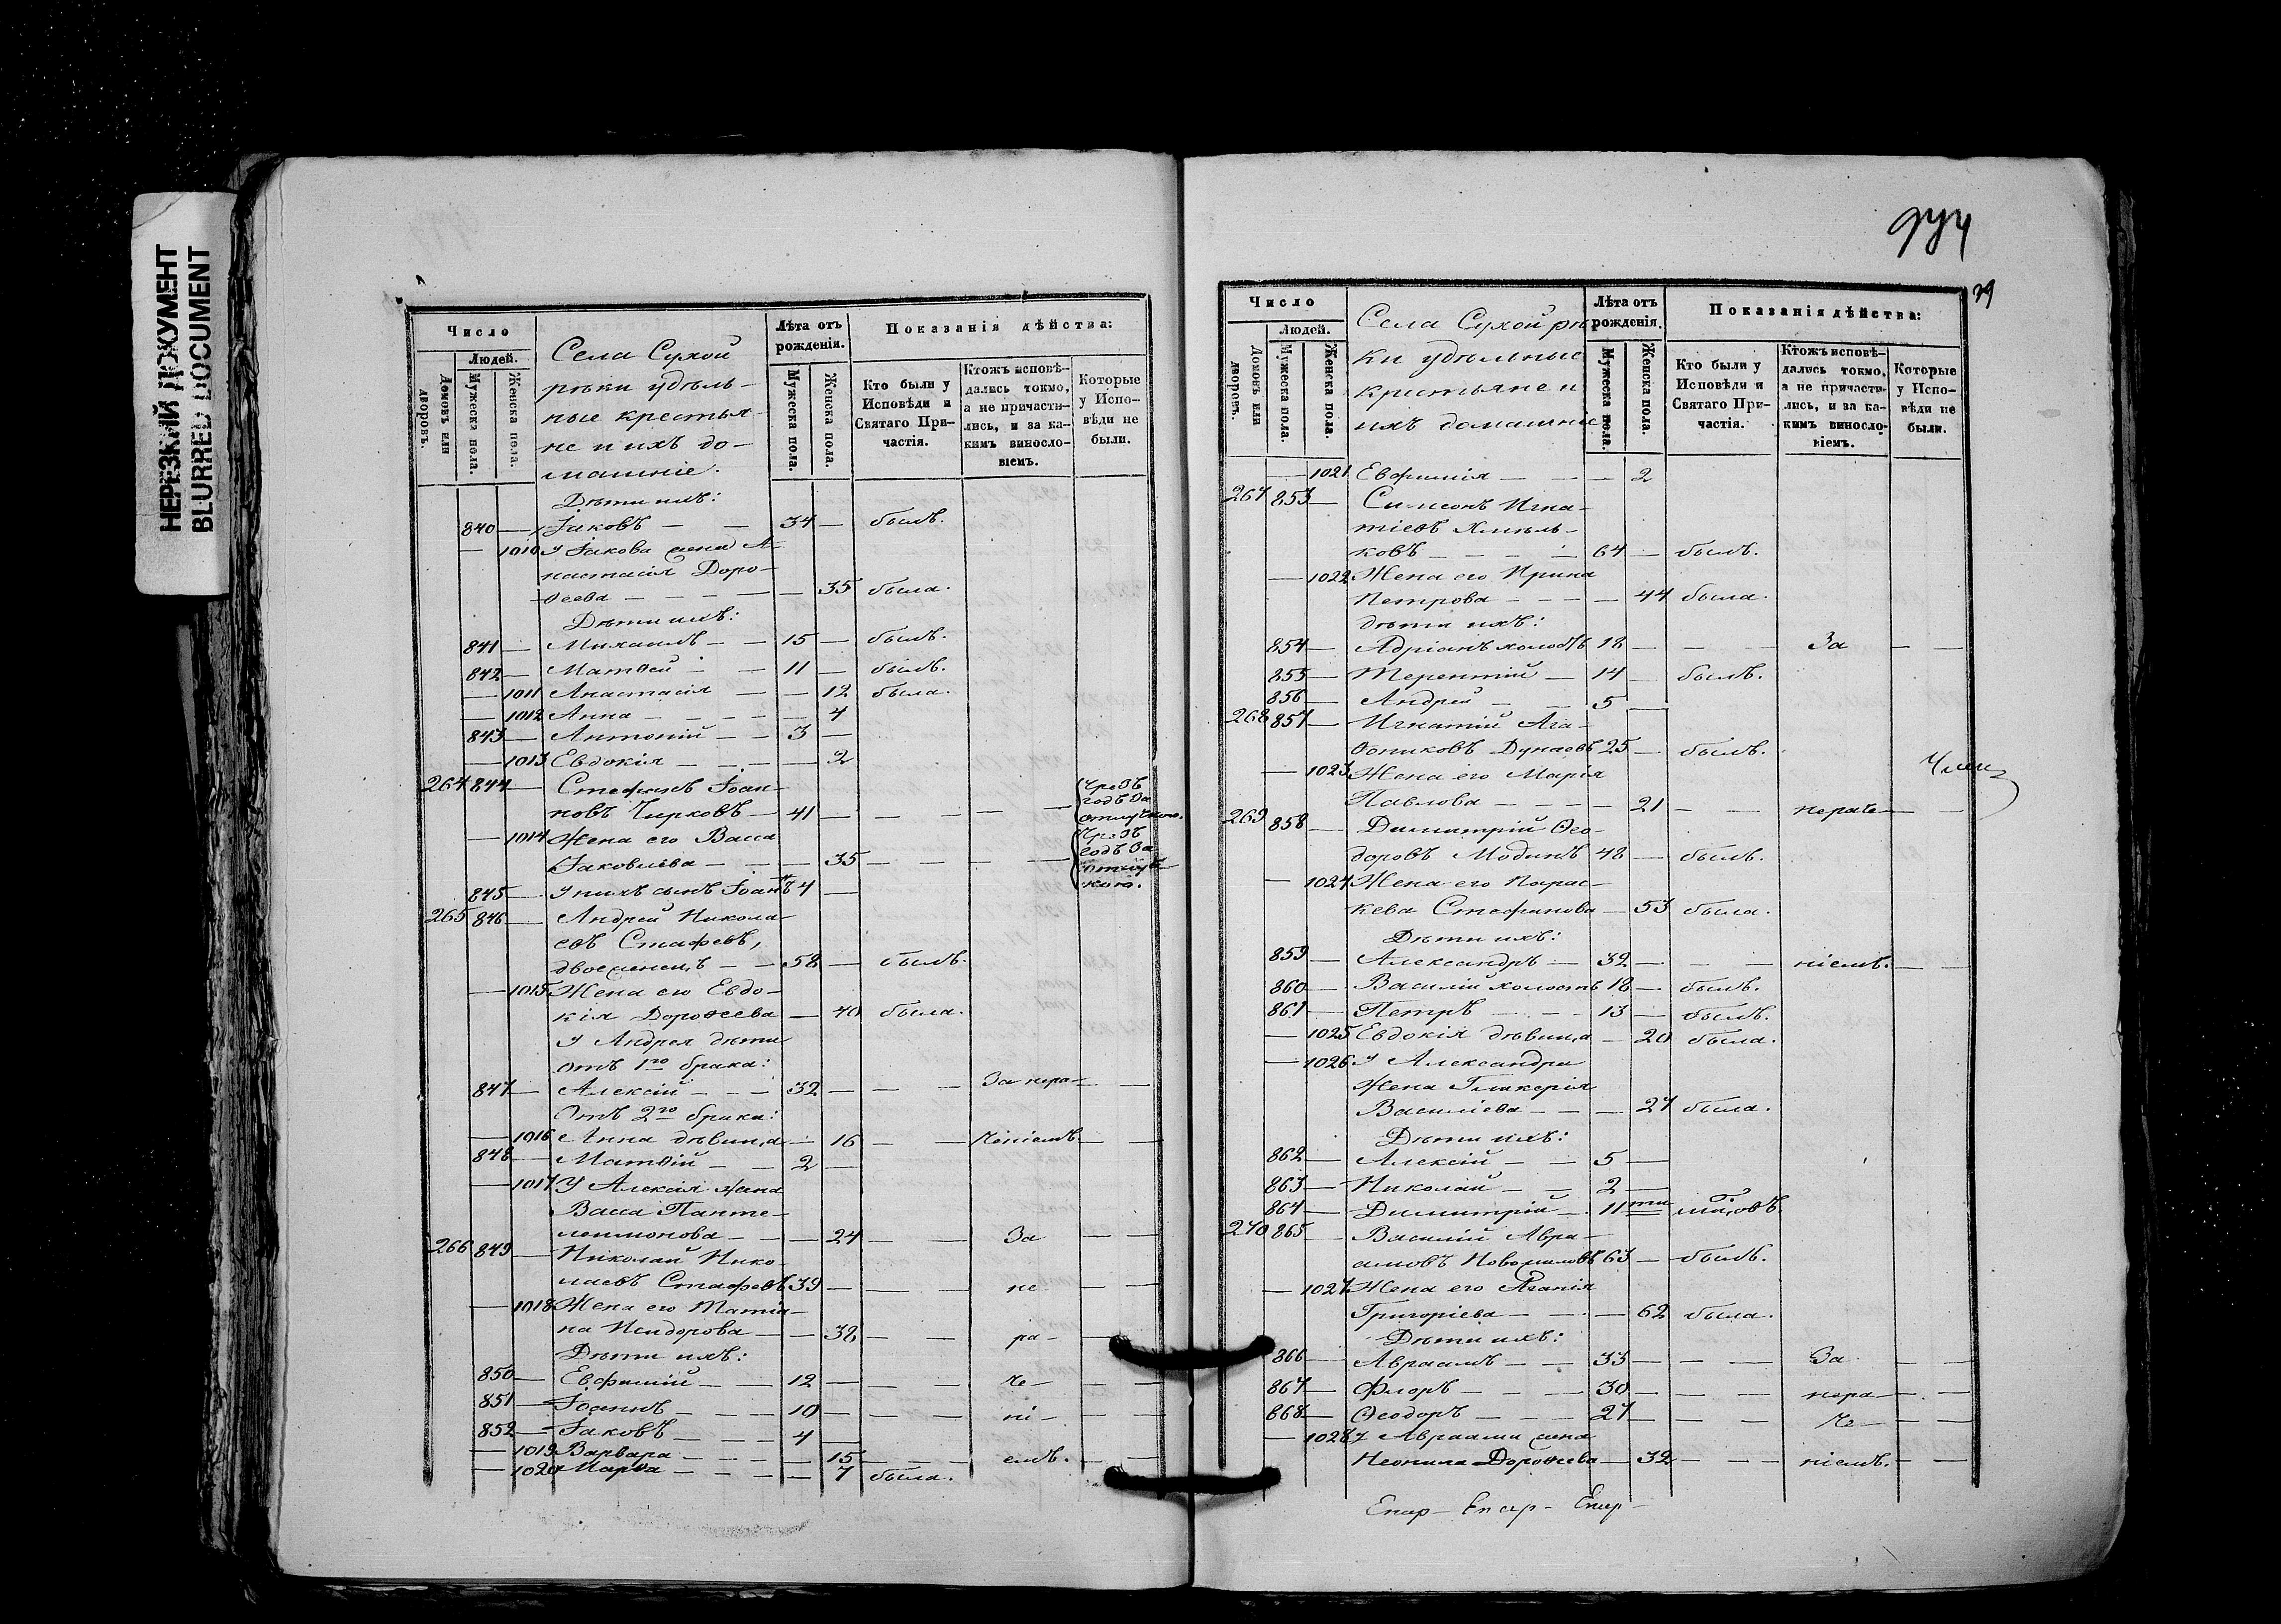 НЕРЕЗКИЙ ДОКУМЕНТ
BLURRED DOCUMENT
Число
Людей.
Домовъ или дворовъ.
Мужеска пола.
Женска пола.
Села Сухой
рѣки удѣль-
ные крестья-
не и ихъ до-
машніе.
Лѣта отъ рожденія.
Мужеска пола.
Женска пола.
Показанія дѣйства:
Кто были у Исповѣди и Святаго При-частія.
Ктожъ исповѣ-дались токмо, а не причасти-лись, и за ка-кимъ винословіемъ.
Которые у Испо-вѣди не были.
Дѣти ихъ:
840 — Іаковъ — — 34 — былъ.
— 1010 У Іакова жена А-
настасія Доро-
ѳеева — — — — 35 была.
Дѣти ихъ:
841 — Михаилъ — — 15 — былъ.
842 — Матѳей — — 11 — былъ.
— 1011 Анастасія — — 12 была.
— 1012 Анна — — — — 4
843 — Антоній — — 3 —
— 1013 Евдокія — — — — 2
264 844 — Стефанъ Іоан-
новъ Чирковъ — 41 — — — — — Чрезъ годъ за отлучкою.
— 1014 Жена его Васса
Іаковлева — — — 35 — — — — Чрезъ годъ за отлуч-кою.
845 — У нихъ сынъ Іоаннъ 4 —
265 846 — Андрей Никола-
евъ Стафеевъ,
двоеженецъ — — 58 — былъ.
— 1015 Жена его Евдо-
кія Дороѳеева — 40 была.
У Андрея дѣти
отъ 1го брака:
847 — Алексій — — — 32 — — — За нера- —
Отъ 2го брака:
— 1016 Анна дѣвица — 16 — — ченіемъ — —
848 — Матѳій — — 2 —
— 1017 У Алексія жена
Васса Панте-
леимонова — — 24 — — За — —
266 849 — Николай Нико-
лаевъ Стафеевъ 39 — — — не — —
— 1018 Жена его Татіа-
на Исидорова — — 38 — — ра- —
Дѣти ихъ:
850 — Евфимій — — 12 — — — че- — —
851 — Іоаннъ — — — 10 — — — ні- — —
852 — Іаковъ — — — 4 —
— 1019 Варвара — — — — 15 — — емъ. — —
— 1020 Марѳа — — — — 7 была.
974
29
Число
Людей.
Домовъ или дворовъ.
Мужеска пола.
Женска пола.
Села Сухой рѣ-
ки удѣльные
крестьяне и
ихъ домашніе
Лѣта отъ рожденія.
Мужеска пола.
Женска пола.
Показанія дѣйства:
Кто были у Исповѣди и Святаго При-частія.
Ктожъ исповѣ-дались токмо, а не причасти-лись, и за ка-кимъ винословіемъ.
Которые у Испо-вѣди не были.
— 1021 Евфимія — — — 2
267 853 — Симеонъ Игна-
тіевъ Хмель-
ковъ — — — — 64 — былъ.
— 1022 Жена его Ирина
Петрова — — — — 44 была.
дѣти ихъ:
854 — Адріанъ холостъ 18 — — — За — —
855 — Терентій — 14 — былъ.
856 — Андрей — — 5
268 857 — Игнатій Ага-
ѳониковъ Дунаевъ 25 — былъ.
— 1023 Жена его Марія
Павлова — — — — 21 — — нераче- —
269 858 — Димитрій Ѳео-
доровъ Модинъ 48 — былъ.
— 1024 Жена его Парас-
кева Стефанова — 53 была.
Дѣти ихъ:
859 — Александръ — 32 — — — ніемъ. — —
860 — Василій холостъ 18 — былъ.
861 — Петръ — — — 13 — былъ.
— 1025 Евдокія дѣвица — 20 была.
— 1026 У Александра
жена Гликерія
Василіева — — — 27 была.
Дѣти ихъ:
862 — Алексій — — 5 —
863 — Николай — — 2 —
864 — Димитрій — 11ти мѣсяцовъ
270 865 — Василій Авра-
амовъ Новомиловъ 63 — былъ.
— 1027 Жена его Агапія
Григоріева — — — 62 была.
Дѣти ихъ:
866 — Авраамъ — — 33 — — — За — —
867 — Флоръ — — — 30 — — — нера- — —
868 — Ѳеодоръ — — — 27 — — — че- — —
— 1028 У Авраама жена
Неонила Дороѳеева — 32 — — — ніемъ. — —